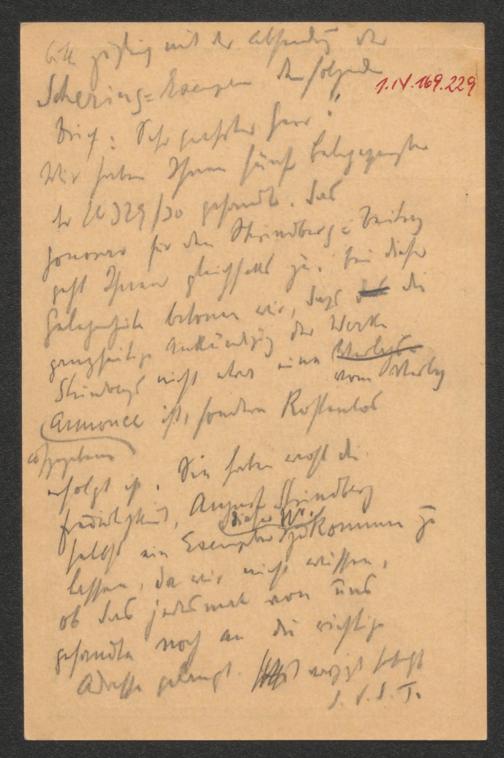 Bitte zugleich mit der Absendung der
Schering=Exemplare den folgenden
1.IV.169.229
Brief: Sehr geehrter Herr!
Wir haben Ihnen fünf Belegexemplare
der 329/30 gesandt. Das
Honorar für den Strindberg=Beitrag
geht Ihnen gleichfalls zu. Bei dieser
Gelegenheit betonen wir, dass die
ganzseitige Ankündigung der Werke
Strindbergs nicht etwa eine Verlags-
vom Verlag
Annonce ist, sondern Kostenlos
aufgegebene
erfolgt ist. Sie haben wohl die
Freundlichkeit, August Strindberg
dieser Nr.
selbst ein Exemplar zukommen zu
lassen, da wir nicht wissen,
ob das jedesmal von uns
gesandte noch an die richtige
Adresse gelangt.